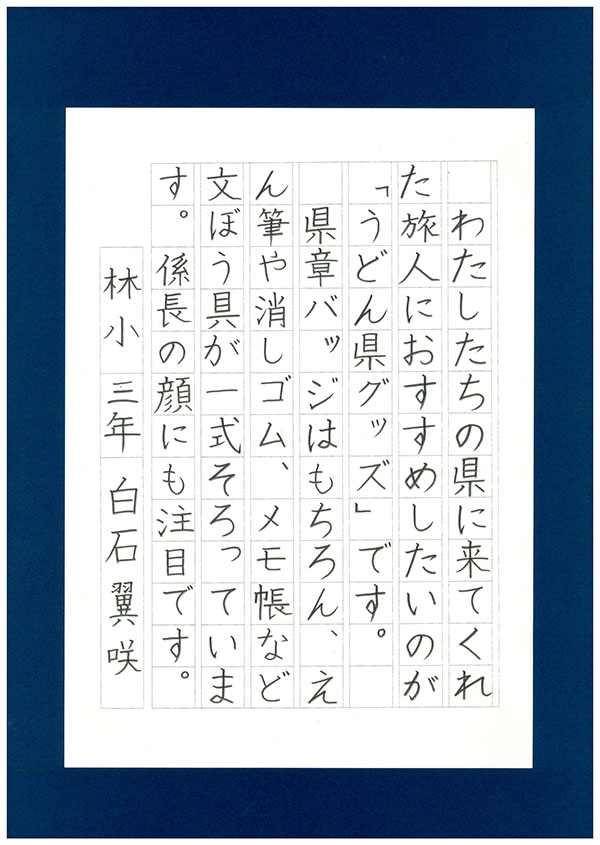 わたしたちの県に来てくれ
た旅人におすすめしたいのが
「うどん県グッズ」です。
県章バッジはもちろん、え
ん筆や消しゴム、メモ帳など
文ぼう具が一式そろっていま
す。係長の顔にも注目です。
林小 三年 白石翼咲